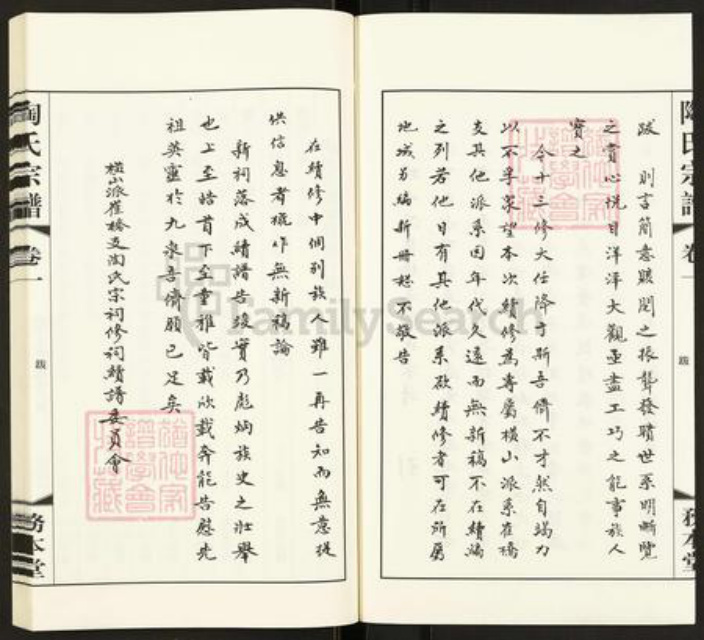 陶氏宗譜
卷一
跋
務本堂
跋 則言簡意賅閱之振聾發聵世系明晰覽
之賞心悅目洋洋大觀亟盡工巧之能事族人
寶之
今十三修大任降于斯吾儕不才然自竭力
以不孚衆望本次續修為專屬橫山派系崔橋
支其他派系因年代久遠而無新稿不在續編
之列若他日有其他派系欲續修者可在所屬
地域另編新冊恕不敬告
在續修中個別族人雖一再告知而無意提
供信息者概作無新稿論
新祠落成續譜告竣實乃彪炳族史之壯舉
也上至嵇首下至童雅皆載欣載奔能告慰先
祖英靈於九泉吾儕願已足矣
橫山派崔橋支陶氏宗祠修祠續譜委員會
陶氏宗譜
卷一
跋
務本堂
FamilySearch